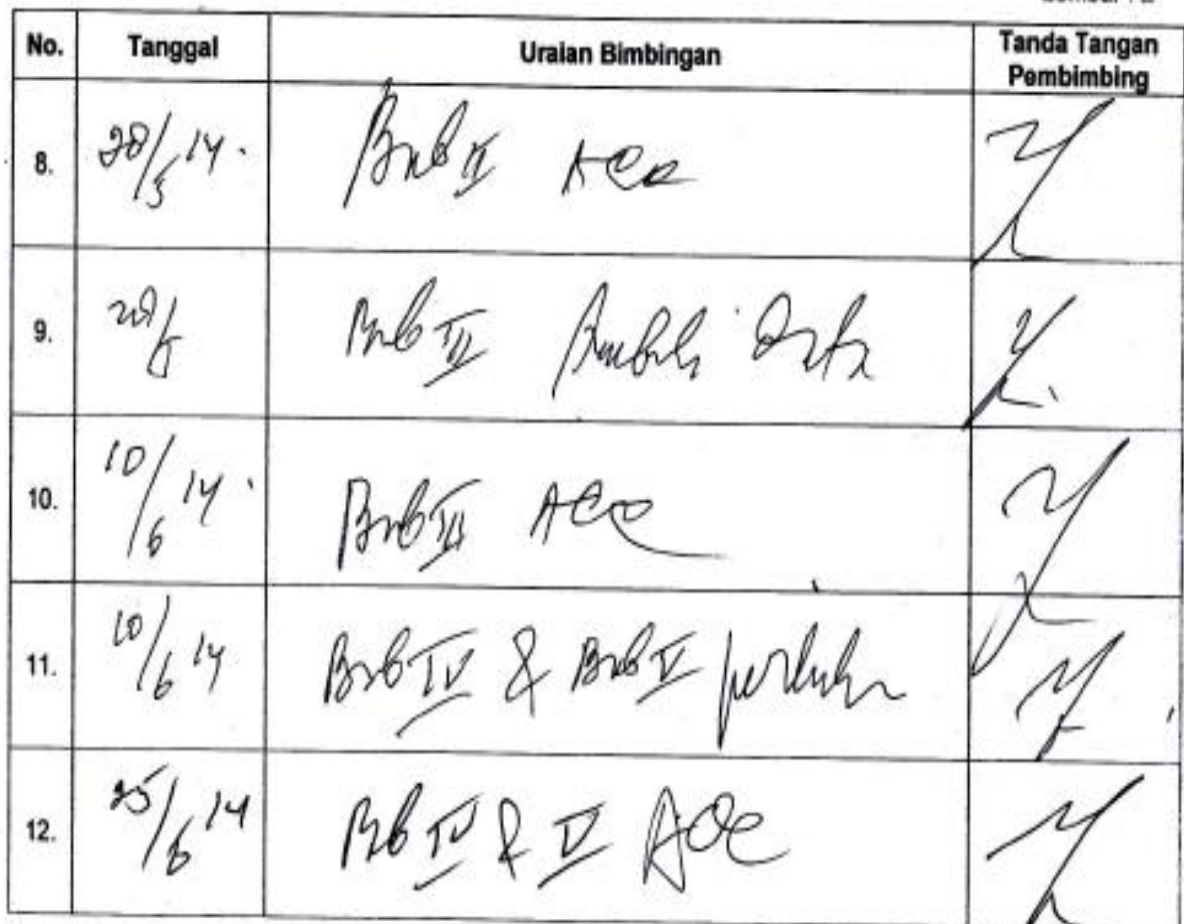 No. Tanggal Uraian Bimbingan Tanda Tangan Pembimbing
8. 28/5 14. Bab II ACC
9. Bab III Data
10. 10/6 14. Bab III ACC
11. 10/6 14 Bab IV & Bab V
12. 25/6 14 Bab IV & V ACC